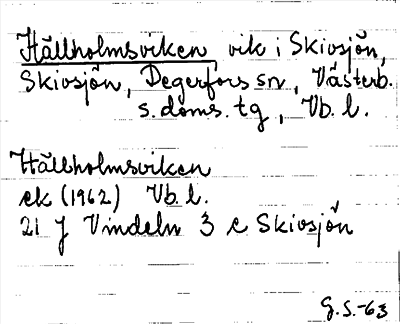 Hällholmsviken, vik i Skivsjön,
Skivsjön, Degerfors sn, Västerb.
s. doms. tg, Vb. l.
Hällholmsviken
ek (1962) Vb. l.
21 J Vindeln 3 c Skivsjön
G. S. -63